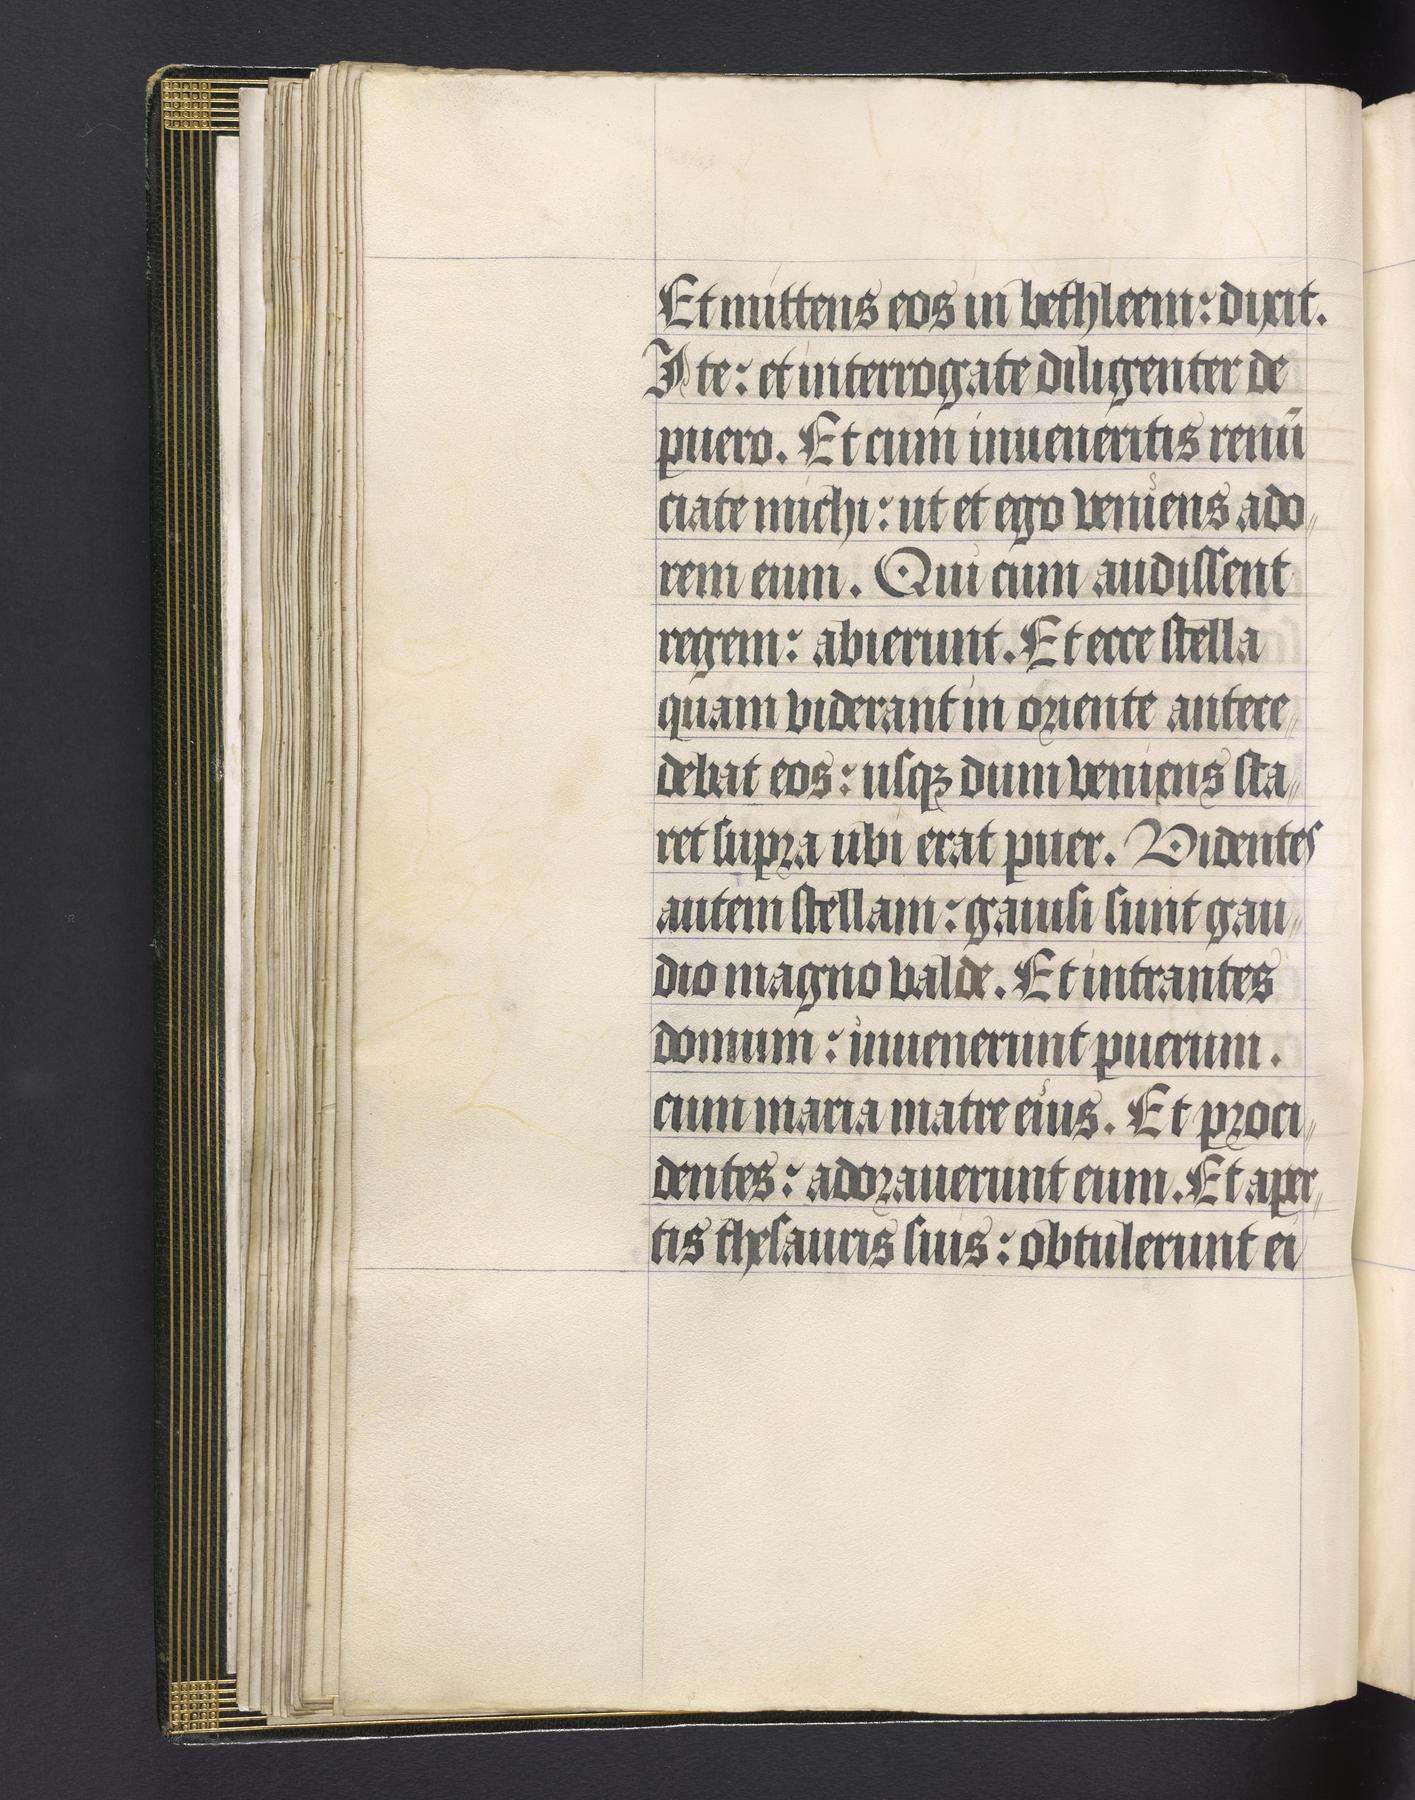 Et mittens eos in bethleem: dixit.
Ite: et interrogate diligenter de
puero. Et cum inueneritis renū
ciate michi: ut et ego veniens ado〃
rem eum. Qui cum audissent
regem: abierunt. Et ecce stella
quam viderant in oriente antece〃
debat eos: usqꝫ dum veniens sta〃
ret supra ubi erat puer. Videntes
autem stellam: gauisi sunt gau〃
dio magno valde. Et intrantes
domum: inuenerunt puerum.
cum maria matre eius. Et proci〃
dentes: adorauerunt eum. Et aper〃
tis thesauris suis: obtulerunt ei